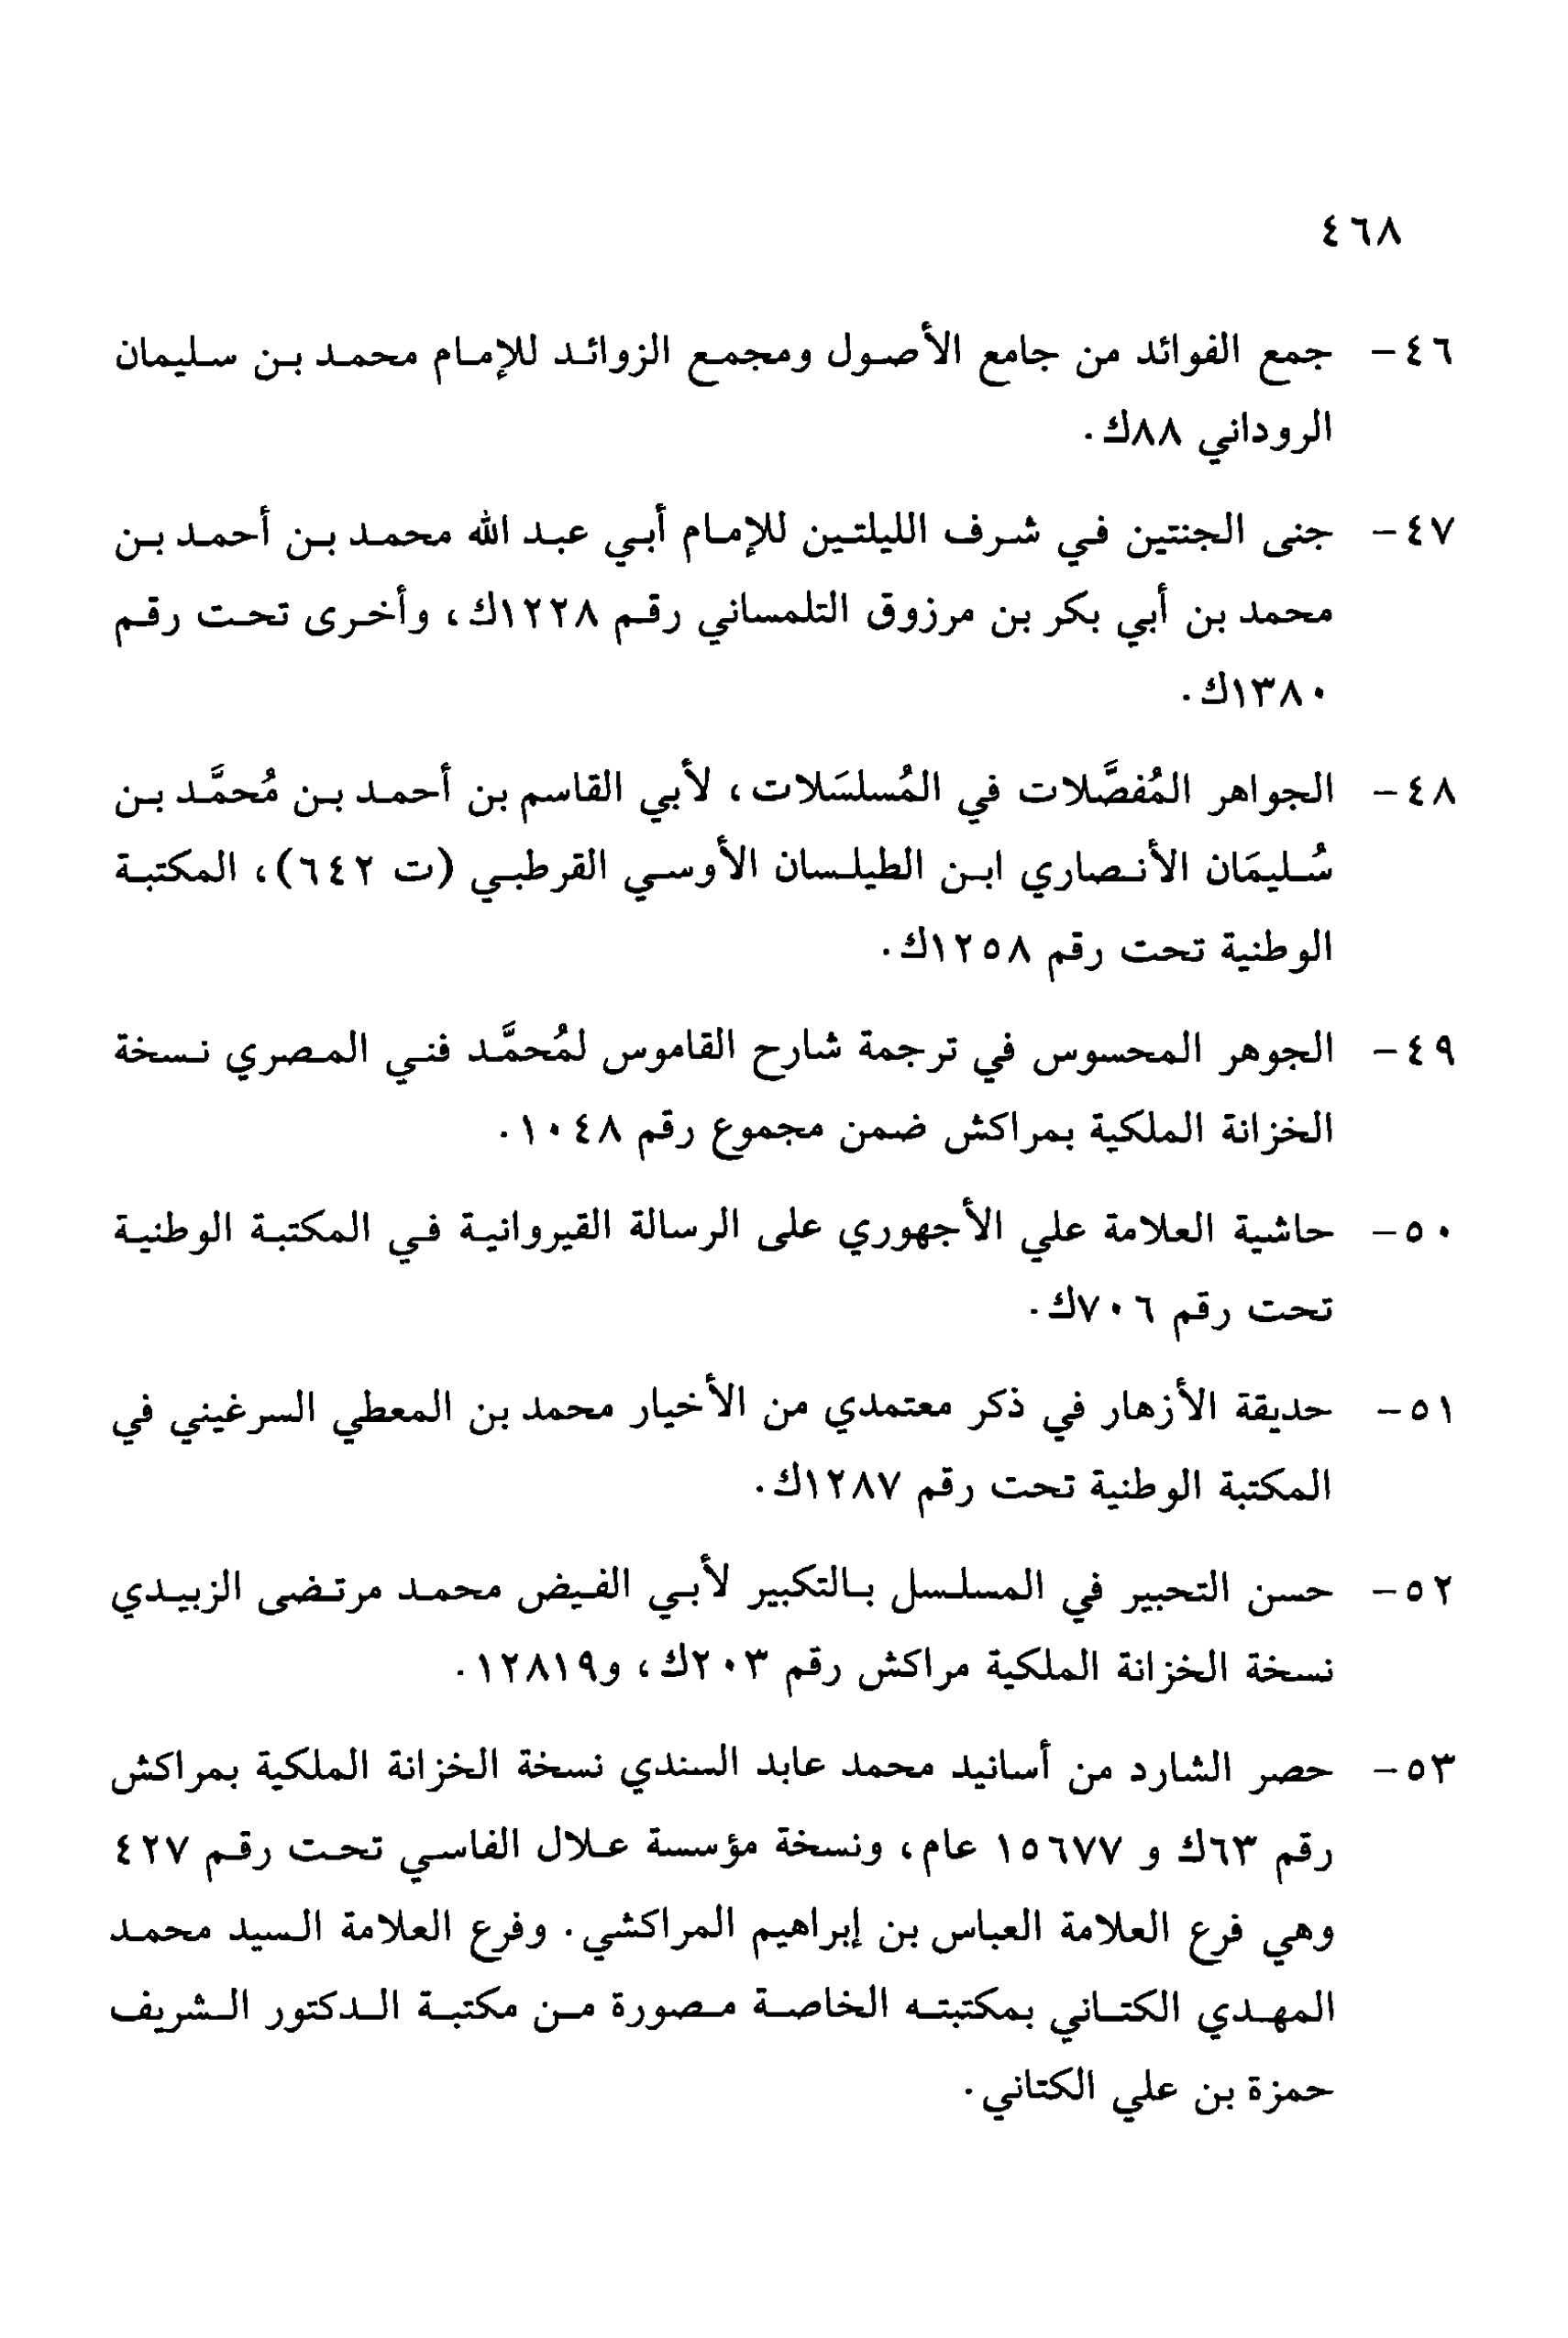 ٤٦٨
٤٦- جمع الفوائد من جامع الأصول ومجمع الزوائد للإمام محمد بن سليمان
الروداني ٨٨ك.
٤٧- جنى الجنتين في شرف الليلتين للإمام أبي عبد الله محمد بن أحمد بن
محمد بن أبي بكر بن مرزوق التلمساني رقم ١٢٢٨ك، وأخرى تحت رقم
١٣٨٠ك.
٤٨- الجواهر المُفصَّلات في المُسلسَلات، لأبي القاسم بن أحمد بن مُحمَّد بن
سُليمَان الأنصاري ابن الطيلسان الأوسي القرطبي (ت ٦٤٢)، المكتبة
الوطنية تحت رقم ١٢٥٨ك.
٤٩- الجوهر المحسوس في ترجمة شارح القاموس لمُحمَّد فني المصري نسخة
الخزانة الملكية بمراكش ضمن مجموع رقم ١٠٤٨.
٥٠- حاشية العلامة علي الأجهوري على الرسالة القيروانية في المكتبة الوطنية
تحت رقم ٧٠٦ك.
٥١- حديقة الأزهار في ذكر معتمدي من الأخيار محمد بن المعطي السرغيني في
المكتبة الوطنية تحت رقم ١٢٨٧ك.
٥٢- حسن التحبير في المسلسل بالتكبير لأبي الفيض محمد مرتضى الزبيدي
نسخة الخزانة الملكية مراكش رقم ٢٠٣ك، و١٢٨١٩.
٥٣- حصر الشارد من أسانيد محمد عابد السندي نسخة الخزانة الملكية بمراكش
رقم ٦٣ك و ١٥٦٧٧ عام، ونسخة مؤسسة علال الفاسي تحت رقم ٤٢٧
وهي فرع العلامة العباس بن إبراهيم المراكشي. وفرع العلامة السيد محمد
المهدي الكتاني بمكتبته الخاصة مصورة من مكتبة الدكتور الشريف
حمزة بن علي الكتاني.